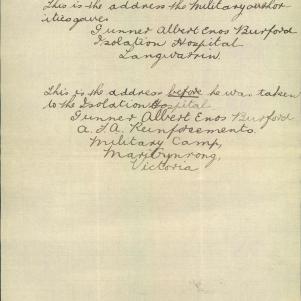 This is the address the Military author
ities gave.
Gunner Albert Enos Burford
Isolation Hospital
Langwarrin.
This is the address before he was taken
to the Isolation Hospital
Gunner Albert Enos Burford
A. F. A. Reinforcements.
Military Camp,
Maribyrnong,
Victoria